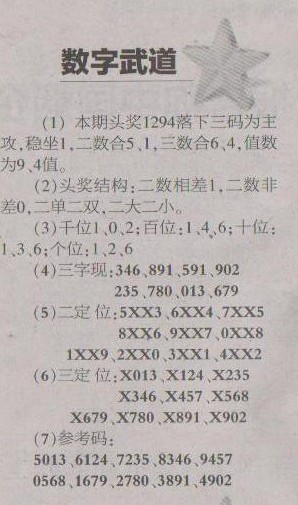 数字武道
(1) 本期头奖1294落下三码为主
攻,稳坐1,二数合5、1,三数合6、4,值数
为9、4值。
(2)头奖结构:二数相差1,二数非
差0,二单二双,二大二小。
(3)千位1、0、2;百位:1、4、6;十位:
1、3、6;个位:1、2、6
(4)三字现:346、891、591、902
235、780、013、679
(5)二定位:5XX3、6XX4、7XX5
8XX6、9XX7、0XX8
1XX9、2XX0、3XX1、4XX2
(6)三定位:X013、X124、X235
X346、X457、X568
X679、X780、X891、X902
(7)参考码:
5013、6124、7235、8346、9457
0568、1679、2780、3891、4902